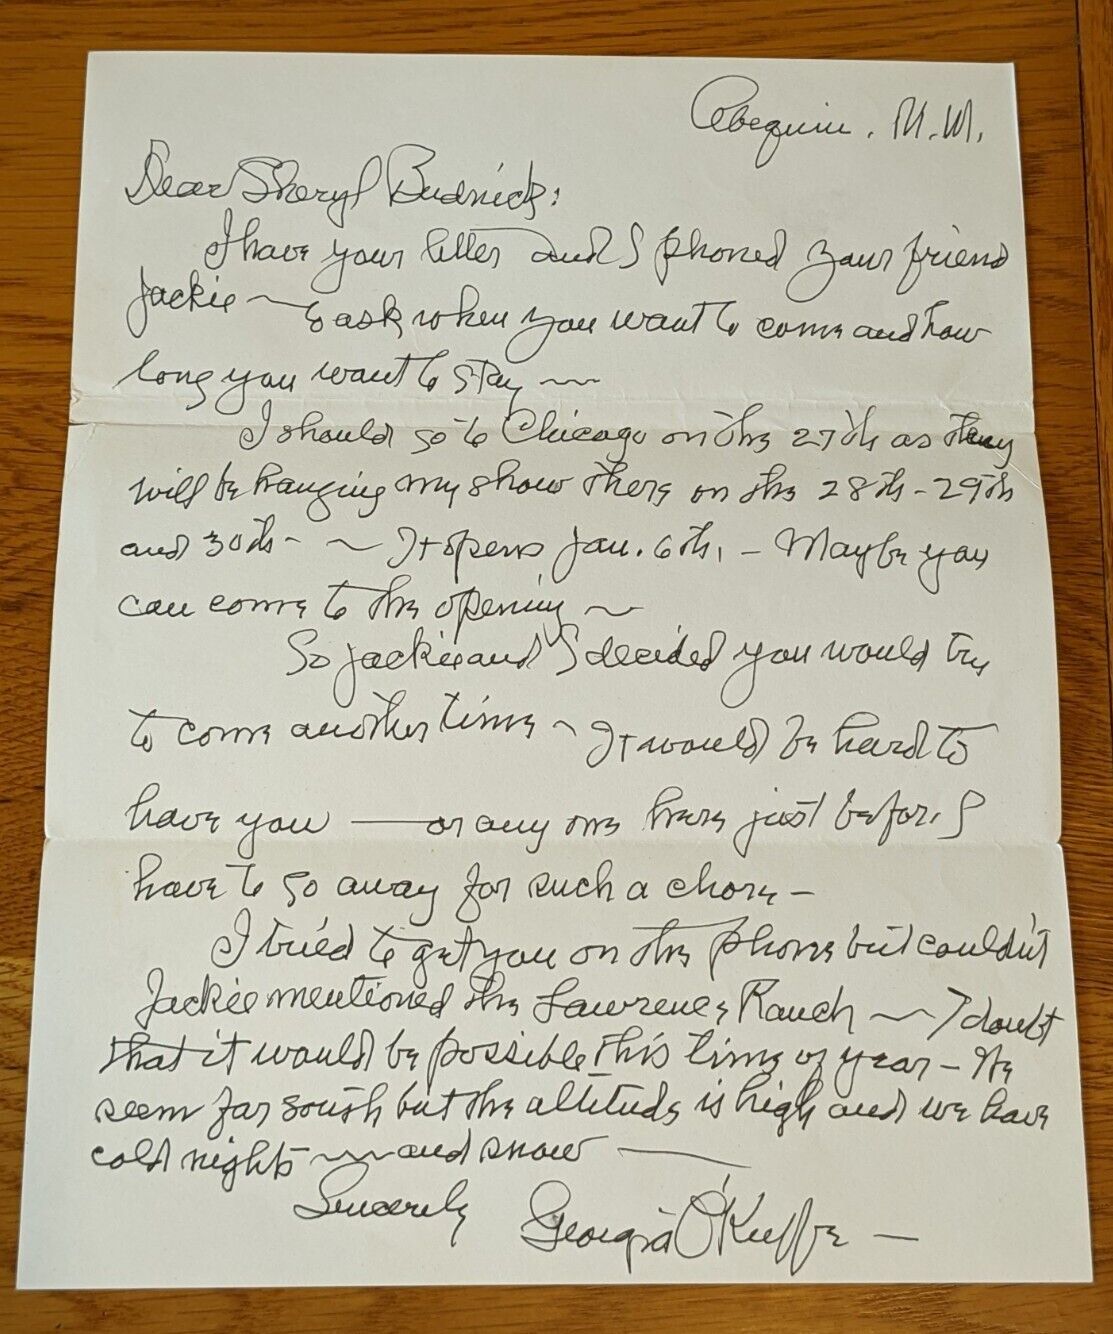 Abiquiu. N.M.
Dear Sheryl Budnick:
I have your letter and I phoned your friend
Jackie ~ to ask when you want to come and how
long you want to stay ~
I should go to Chicago on the 27th as they
will be hanging my show there on the 28th - 29th
and 30th - ~ It opens Jan. 6th, - Maybe you
can come to the opening ~
So Jackie and I decided you would try
to come another time ~ It would be hard to
have you — or any one here just before I
have to go away for such a chore -
I tried to get you on the phone but couldn't
Jackie mentioned the Lawrence Ranch ~ I doubt
that it would be possible this time of year - We
seem far south but the altitude is high and we have
cold nights ~ and snow —
Sincerely Georgia O'Keeffe —